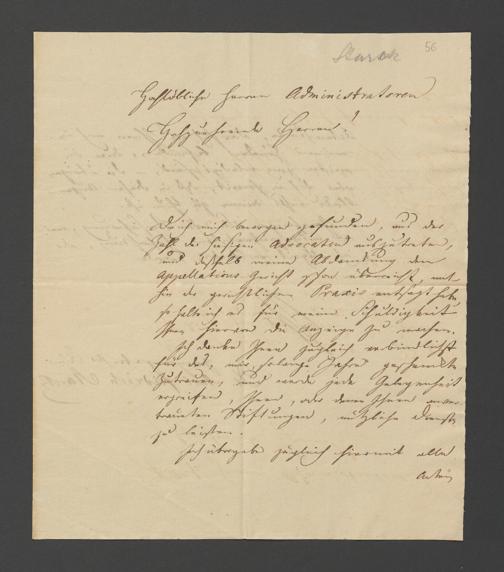 56
Starck
Hochlöbliche Herren Administratoren
Hochzuverehrende Herren!
Da ich mich bewogen gefunden, aus der
Zahl der hiesigen Advocaten auszutreten,
und deshalb meine Abdankung dem
Appellations Gericht schon überreicht, mit
hin der gerichtlichen Praxis entsagt habe,
so halte ich es für meine Schuldigkeit
Ihnen hiervon die Anzeige zu machen.
Ich danke Ihnen zugleich verbindlichst
für das, mir solange Jahre geschenkte
Zutrauen, und werde jede Gelegenheit
ergreifen, Ihnen, oder denen Ihnen anver
trauten Stiftungen, nützliche Dienste
zu leisten.
Ich übergebe zugleich hiermit alle